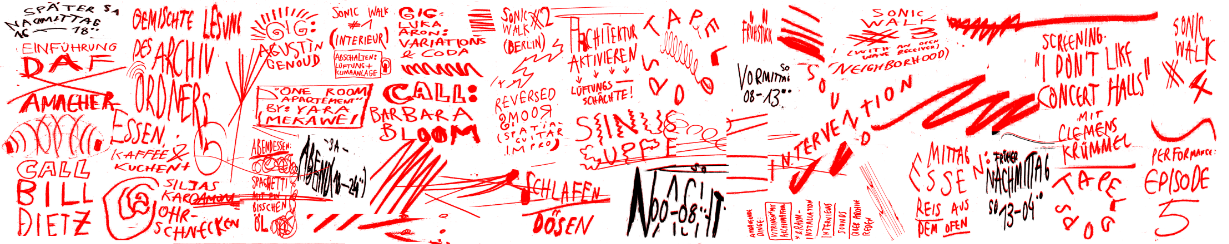 SPÄTER SA
NACHMITTAG
16 - 18:00
EINFÜHRUNG
DAF
AMACHER
CALL
BILL
DIETZ
GEMISCHTE LESUNG
DES
ARCHIV
ORDNERS
ESSEN:
KAFFEE &
KUCHEN!
SILJAS
KARDAMOM
OHR-
SCHNECKEN
GIG:
AGUSTIN
GENOUD
SONIC WALK
#1
(INTERIEUR)
ABSCHALTEN:
LÜFTUNG +
KLIMAANLAGE
"ONE ROOM
APARTEMENT"
BY: YARA
MEKAWEI
ABENDESSEN:
SPAGHETTI
MIT EIN
BISSCHEN
ÖL
SA
ABEND (18-24:00)
GIG:
LUKA
ARON:
VARIATIONS
& CODA
CALL:
BARBARA
BLOOM
SONIC
WALK #2
(BERLIN)
REVERSED
ROOM
SPATIAL
GUITAR
IMPRO
SCHLAFEN
DÖSEN
ARCHITEKTUR
AKTIVIEREN
LÜFTUNGS
SCHÄCHTE!
SING
SUPPE
TAPE
SPOOL
SO
NACHT
00-08:00
FRÜHSTÜCK
VORMITTAG SO
08-13:00
SOUND
INTERVENTION
SONIC
WALK
#3
(WITH AN OPEN
WAVE RECEIVER)
(NEIGHBORHOOD)
MITTAG
ESSEN:
REIS AUS
DEM OFEN
FRÜHER
NACHMITTAG
SO 13-04:00
SCREENING:
"I DON'T LIKE
CONCERT HALLS"
MIT
CLEMENS
KRÜMMEL
TAPE
SPOOL
SONIC
WALK
#4
PERFORMANCE:
EPISODE
5